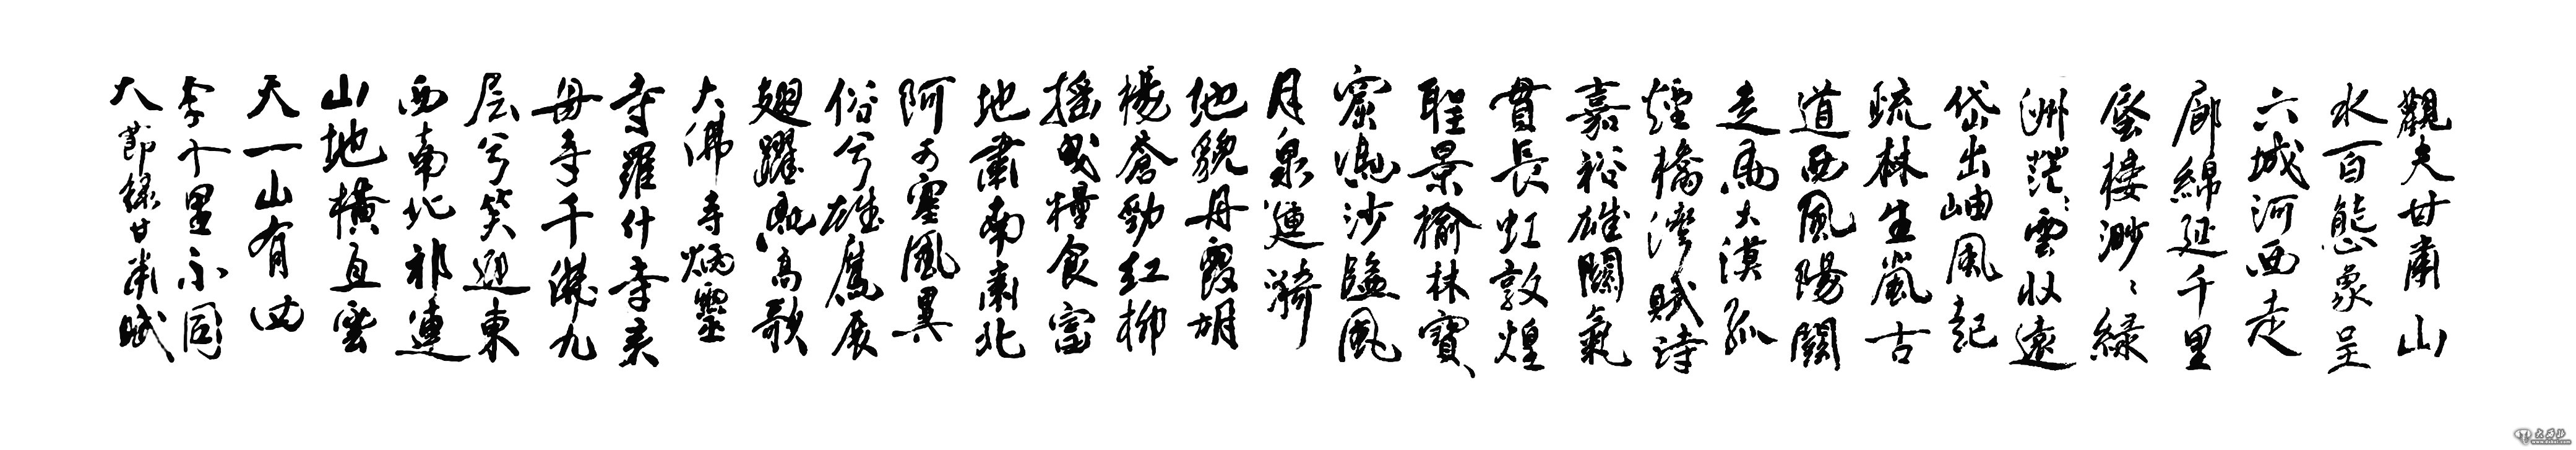 觀夫甘肅山
水百態象呈
六城河西走
廊綿延千里
蜃樓渺渺綠
洲茫茫雲收遠
岱出岫風起
疏林生嵐古
道西風陽關
走馬大漠孤
煙橋灣賦詩
嘉裕雄關氣
貫長虹敦煌
聖景榆林寶
窟鴻沙鹽風
月泉漣漪
地貌丹霞胡
楊蒼勁紅柳
搖曳糧食富
地肅南肅北
阿可塞風異
俗兮雄鷹展
翅躍馬高歌
大佛寺炳靈
寺羅什寺來
母寺千佛九
层兮笑迎東
西南北祁連
山地橫亘雲
天一山有四
季十里不同
大節錄甘肅賦